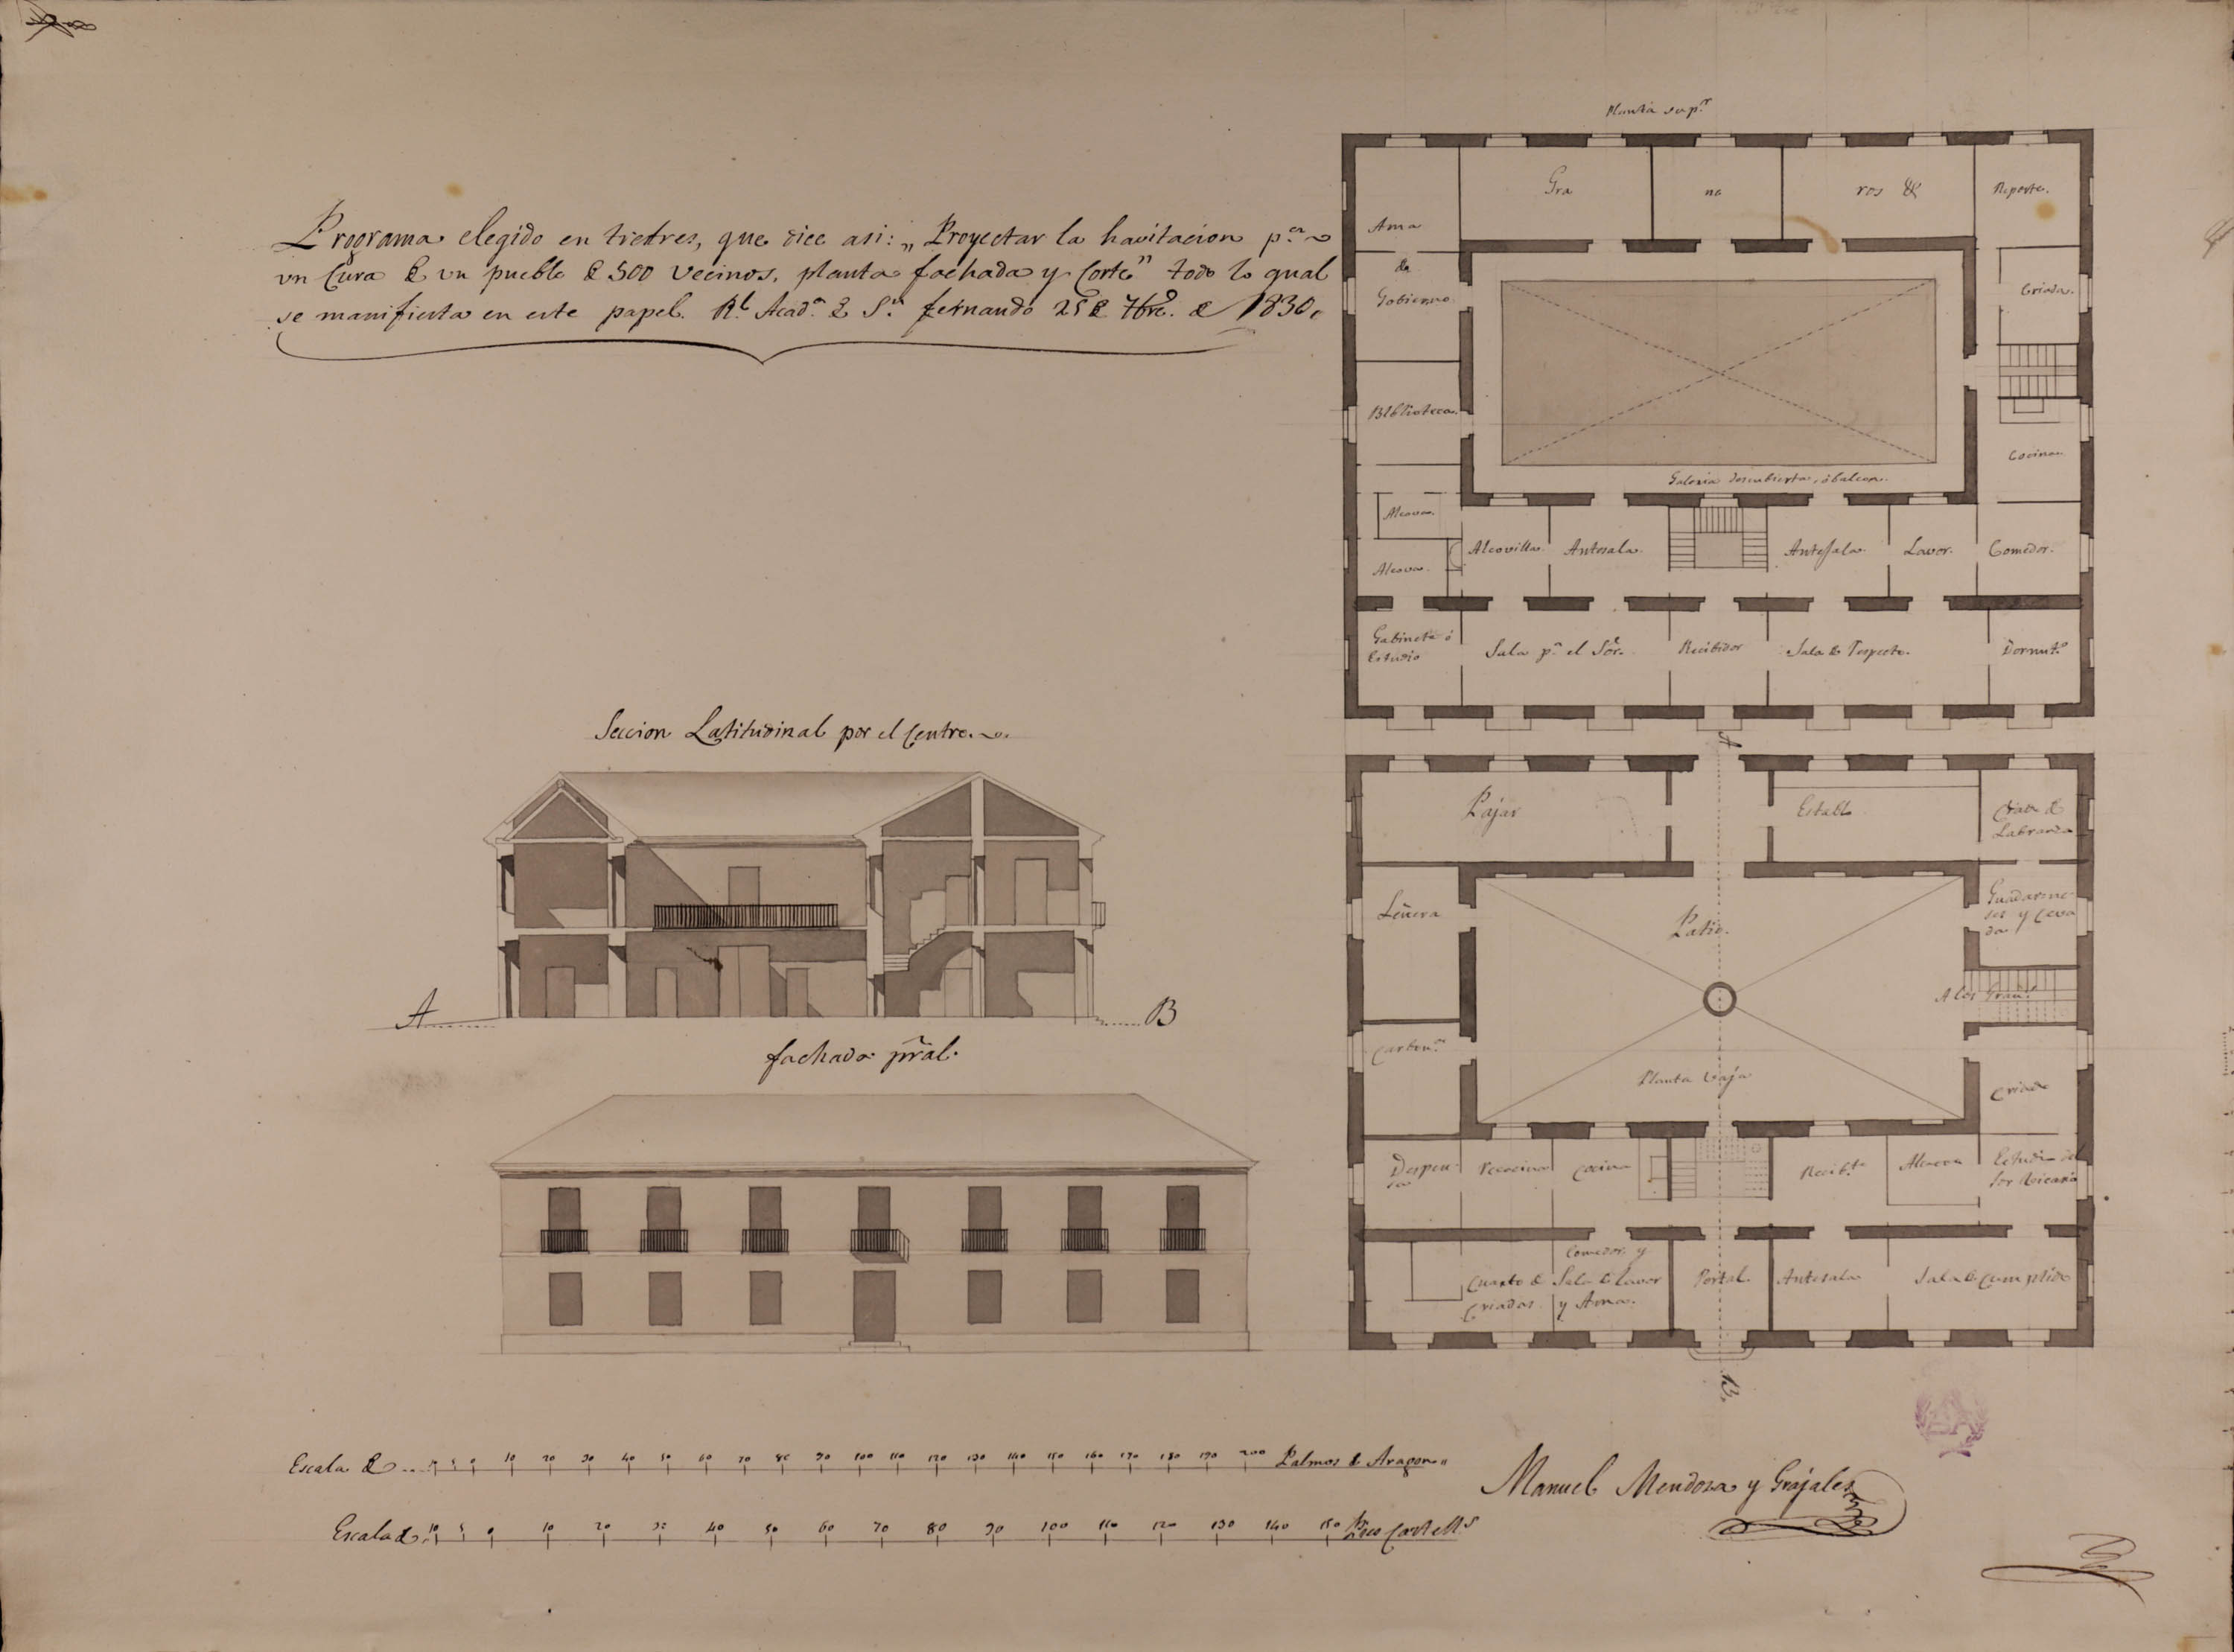 Programa elegido en tredres, que dice asi: „ Proyectar la havitacion p.ª
un Cura de un pueblo de 500 vecinos, planta fachada y Corte" todo lo qual
se manifiesta en este papel. R.l Acad.ª de S.n fernando 25 de 7bre. de 1830.
Planta sup.r
Gra na ros &
Reposte.
Ama
de
Gobierno.
Criada.
Biblioteca.
Cocina.
Galeria descubierta, ó balcon.
Alcova.
Alcovilla. Antesala. Antesala. Lavor. Comedor.
Alcova.
Gabinete ó
Estudio
Sala p.ª el Sor. Recibidor Sala de Respecto. Dormit.º
Seccion Latitudinal por el Centro.
A B
fachada pral.
A
Pajar Establo
Criado de
Labranza
Leñera
Patio.
Guadarne-
ses y Ceva
da
A los Gran.s
Carbon.ª
Planta vaja
Criado
Despen-
sa
Recocina Cocina Recib.to Alcova
Estudio del
Sor Vicario
Cuarto de
Criadas.
Comedor y
Sala de Lavor
y Ama.
Portal. Antesala Sala de Cumplido
B.
Escala de 10 5 0 10 20 30 40 50 60 70 80 90 100 110 120 130 140 150 160 170 180 190 200 Palmos de Aragon
Escala de 10 5 0 10 20 30 40 50 60 70 80 90 100 110 120 130 140 150 Pies Castell.s
Manuel Mendoza y Grajales